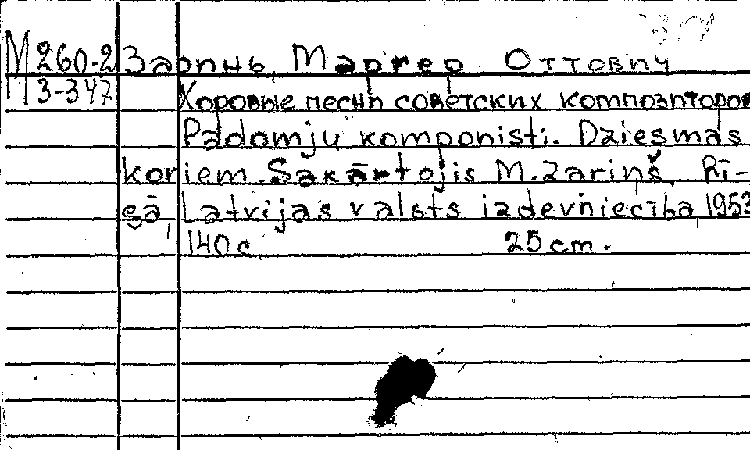 М 260-2 Заринь, Маргер Оттович
М 3-347 Хоровые песни советских композиторов
Padomju komponisti. Dziesmas
koriem. Sakārtojis M. Zariņš. Rī-
gā, Latvijas valsts izdevniecība 1953
140 с 25 cm.